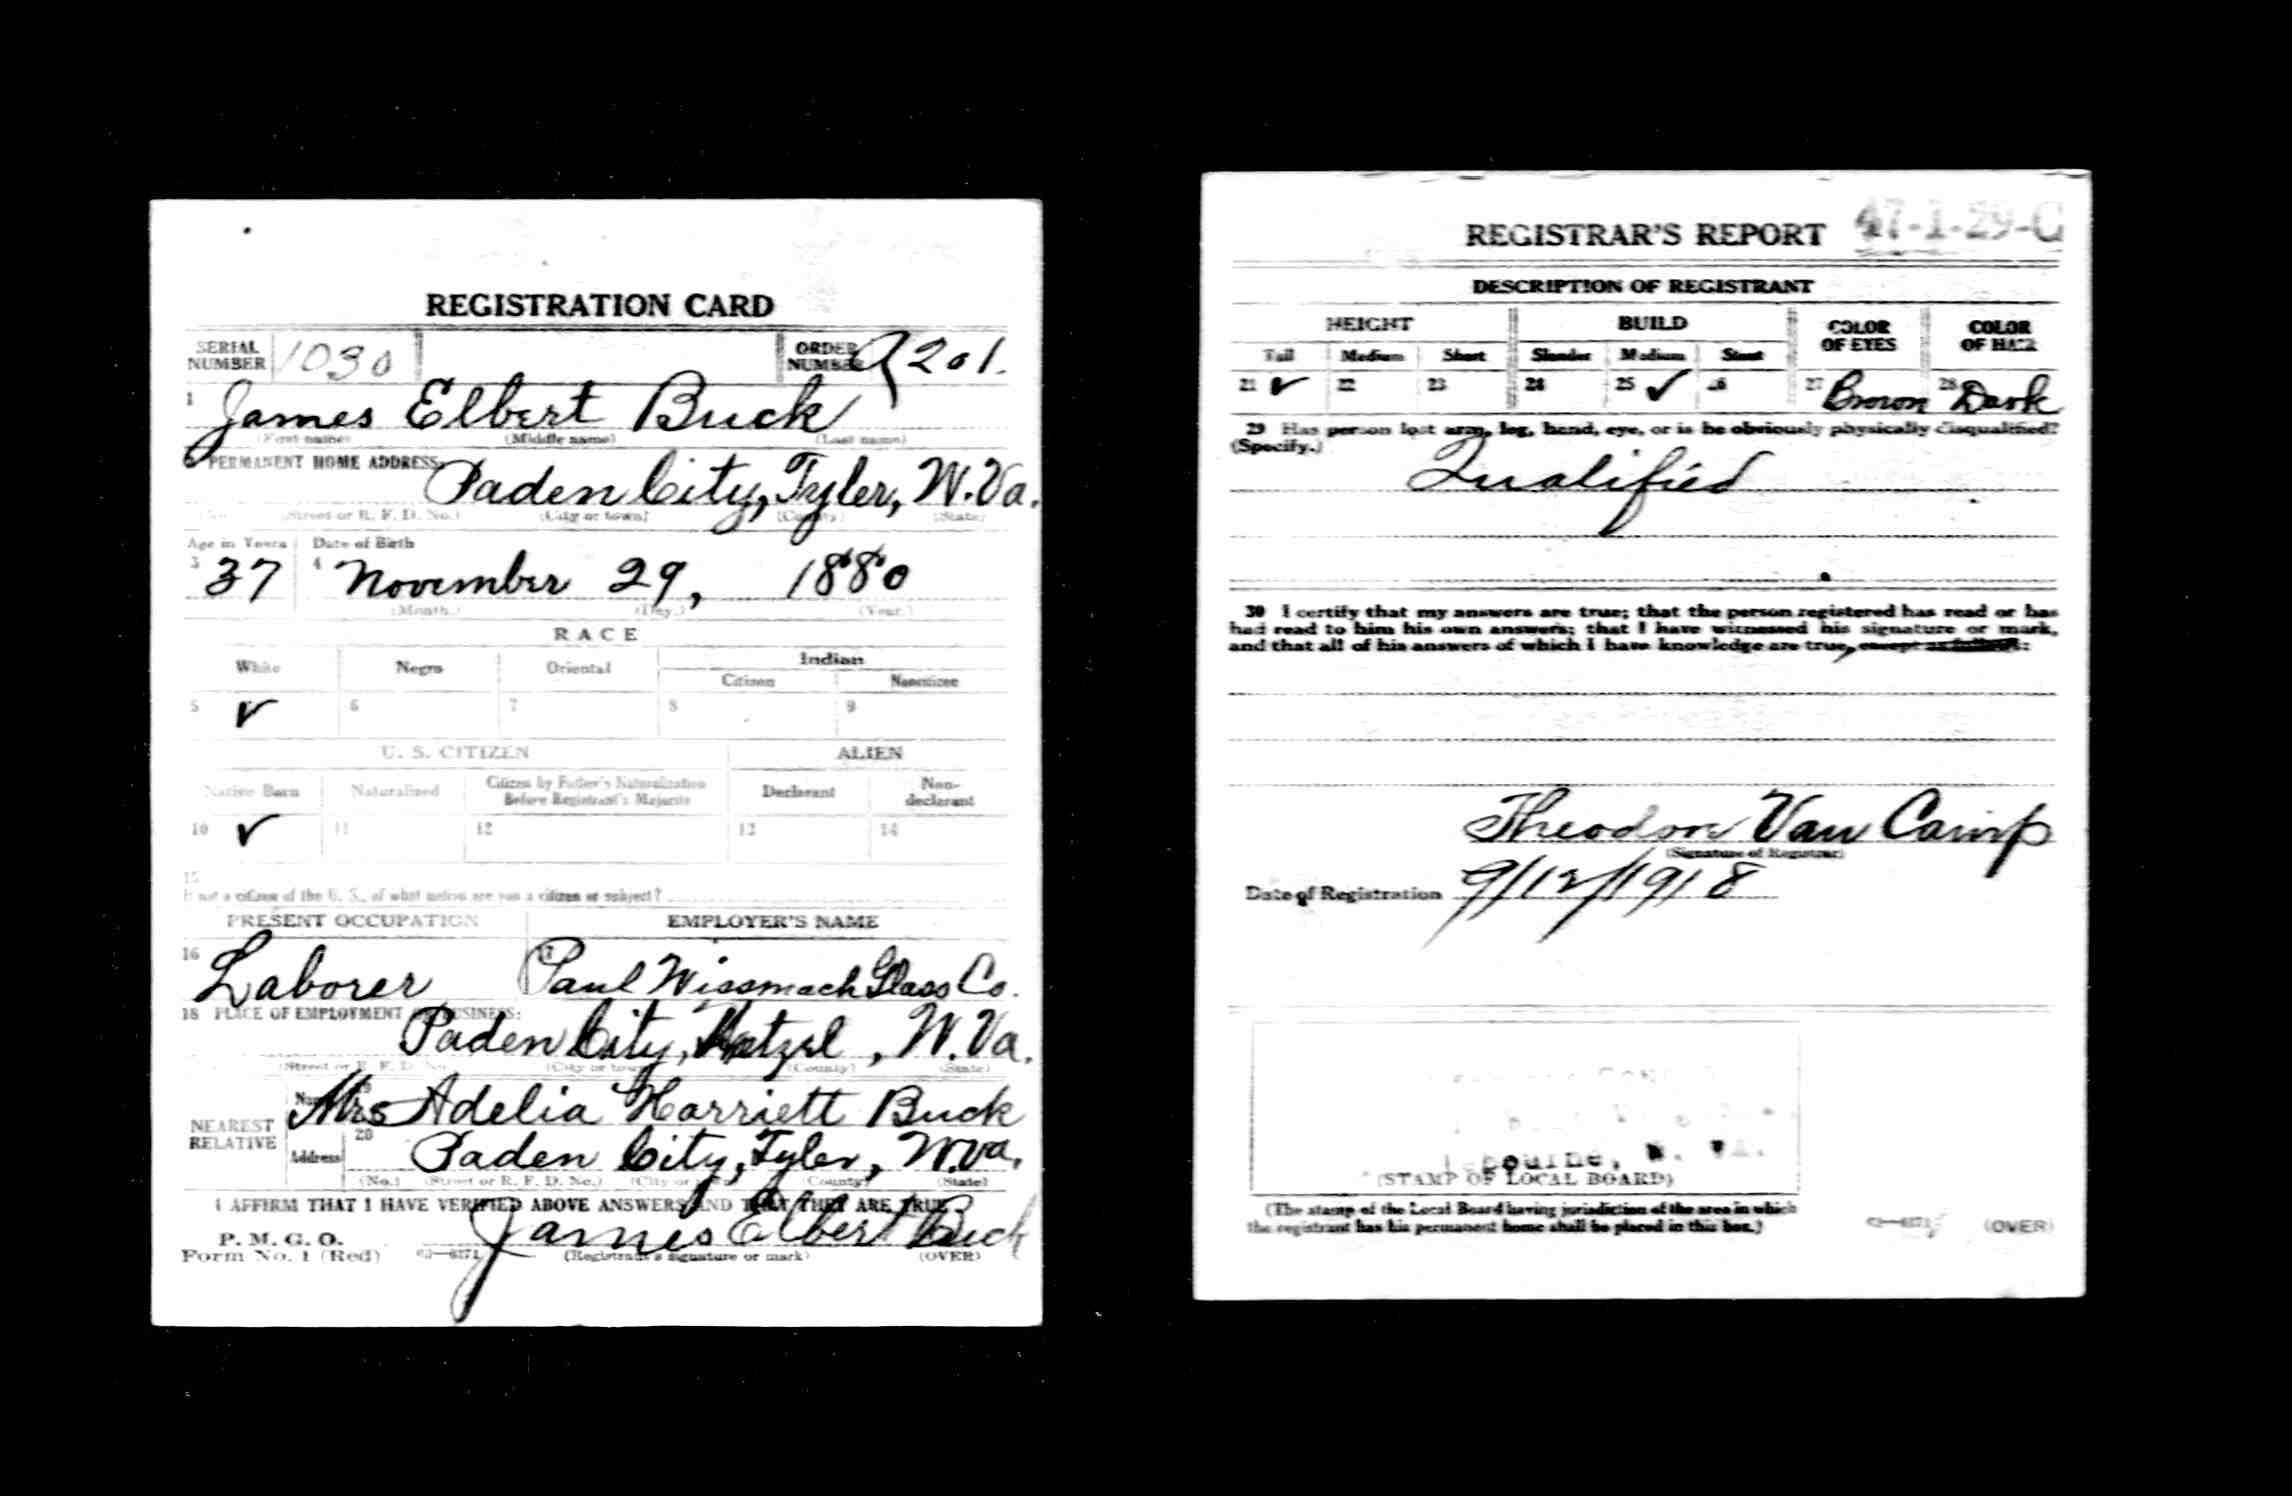 REGISTRATION CARD
SERIAL NUMBER 1030 ORDER NUMBER A201.
1 James Elbert Buck
(First name) (Middle name) (Last name)
2 PERMANENT HOME ADDRESS: Paden City, Tyler, W. Va.
(No.) (Street or R. F. D. No.) (City or town) (County) (State)
Age in Years Date of Birth
3 37 4 November 29, 1880
(Month.) (Day.) (Year.)
RACE
White Negro Oriental Indian
Citizen Noncitizen
5 ✓ 6 7 8 9
U. S. CITIZEN ALIEN
Native Born Naturalized Citizen by Father's Naturalization Before Registrant's Majority Declarant Non-declarant
10 ✓ 11 12 13 14
15
If not a citizen of the U. S., of what nation are you a citizen or subject?
PRESENT OCCUPATION EMPLOYER'S NAME
16 Laborer 17 Paul Wissmach Glass Co.
18 PLACE OF EMPLOYMENT OR BUSINESS:
Paden City, Wetzel, W. Va.
(Street or R. F. D. No.) (City or town) (County) (State)
NEAREST RELATIVE Name 19 Mrs Adelia Harriett Buck
Address 20 Paden City, Tyler, W. Va.
(No.) (Street or R. F. D. No.) (City or town) (County) (State)
I AFFIRM THAT I HAVE VERIFIED ABOVE ANSWERS AND THAT THEY ARE TRUE
P. M. G. O.
Form No. 1 (Red) James Elbert Buck
(Registrant's signature or mark) (OVER)
REGISTRAR'S REPORT 47-1-29-C
DESCRIPTION OF REGISTRANT
HEIGHT BUILD COLOR OF EYES COLOR OF HAIR
Tall Medium Short Slender Medium Stout
21 ✓ 22 23 24 25 ✓ 26 27 Brown 28 Dark
29 Has person lost arm, leg, hand, eye, or is he obviously physically disqualified?
(Specify.)
Qualified
30 I certify that my answers are true; that the person registered has read or has
had read to him his own answers; that I have witnessed his signature or mark,
and that all of his answers of which I have knowledge are true, except as follows:
Theodore Van Camp
(Signature of Registrar)
Date of Registration 9/12/1918
W. VA.
(STAMP OF LOCAL BOARD)
(The stamp of the Local Board having jurisdiction of the area in which
the registrant has his permanent home shall be placed in this box.)
(OVER)